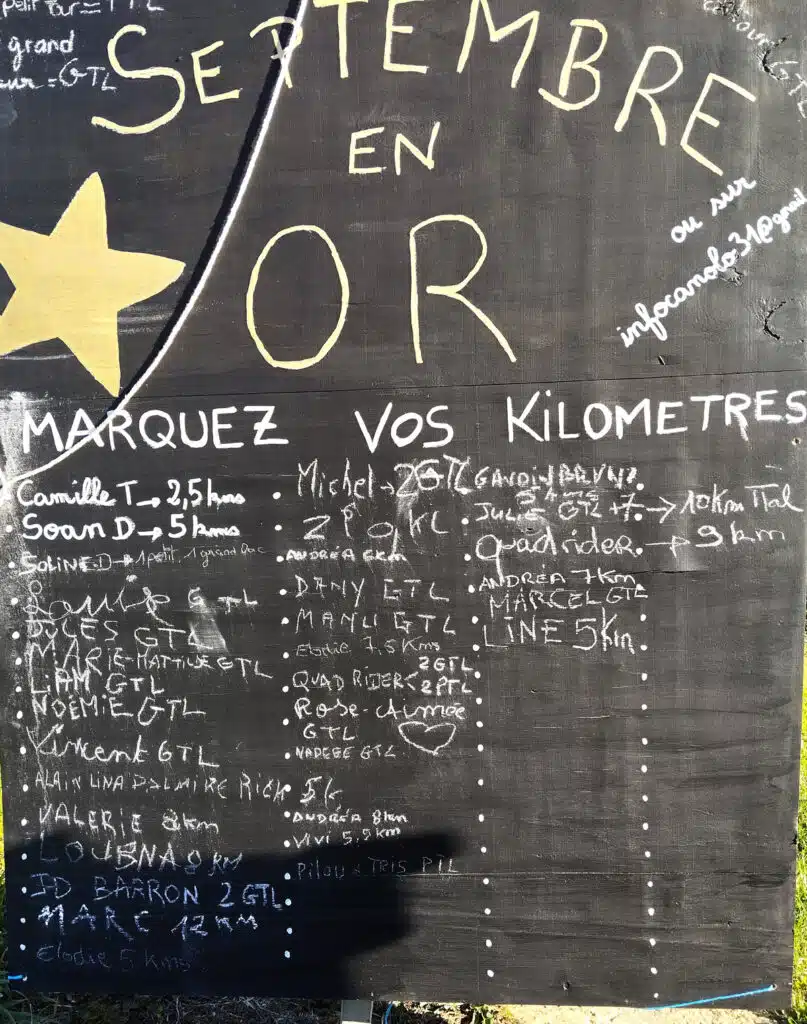 Petit
grand
= GTL
SEPTEMBRE
EN
OR
ou sur
infocanolo31@gmail
MARQUEZ VOS KILOMETRES
Camille T → 2,5 kms
Soan D → 5 kms
SOLINE.D → 1 petit, 1 grand
GTL
GTL
MARIE-MATTILDE GTL
LIAM GTL
NOEMIE GTL
Vincent GTL
ALAIN LINA PALMIRE RICK 5k
VALERIE 8km
LOUBNA 8 KM
JD BARRON 2 GTL
MARC 12 KM
Elodie 5 kms
Michel → 2 GTL
ANDRÉA 6km
DANY GTL
MANU GTL
Elodie 7,5 Kms
QUAD RIDER < 2 GTL
2 PTL
Rose-Aimée
GTL
NADEGE GTL
ANDRÉA 8km
VIVI 5,5 km
Pilou & TRIS PTL
JULIE GTL +7 → 10km Ttal
Quadrider → 9 km
ANDRÉA 7Km
MARCEL GTL
LINE 5Km